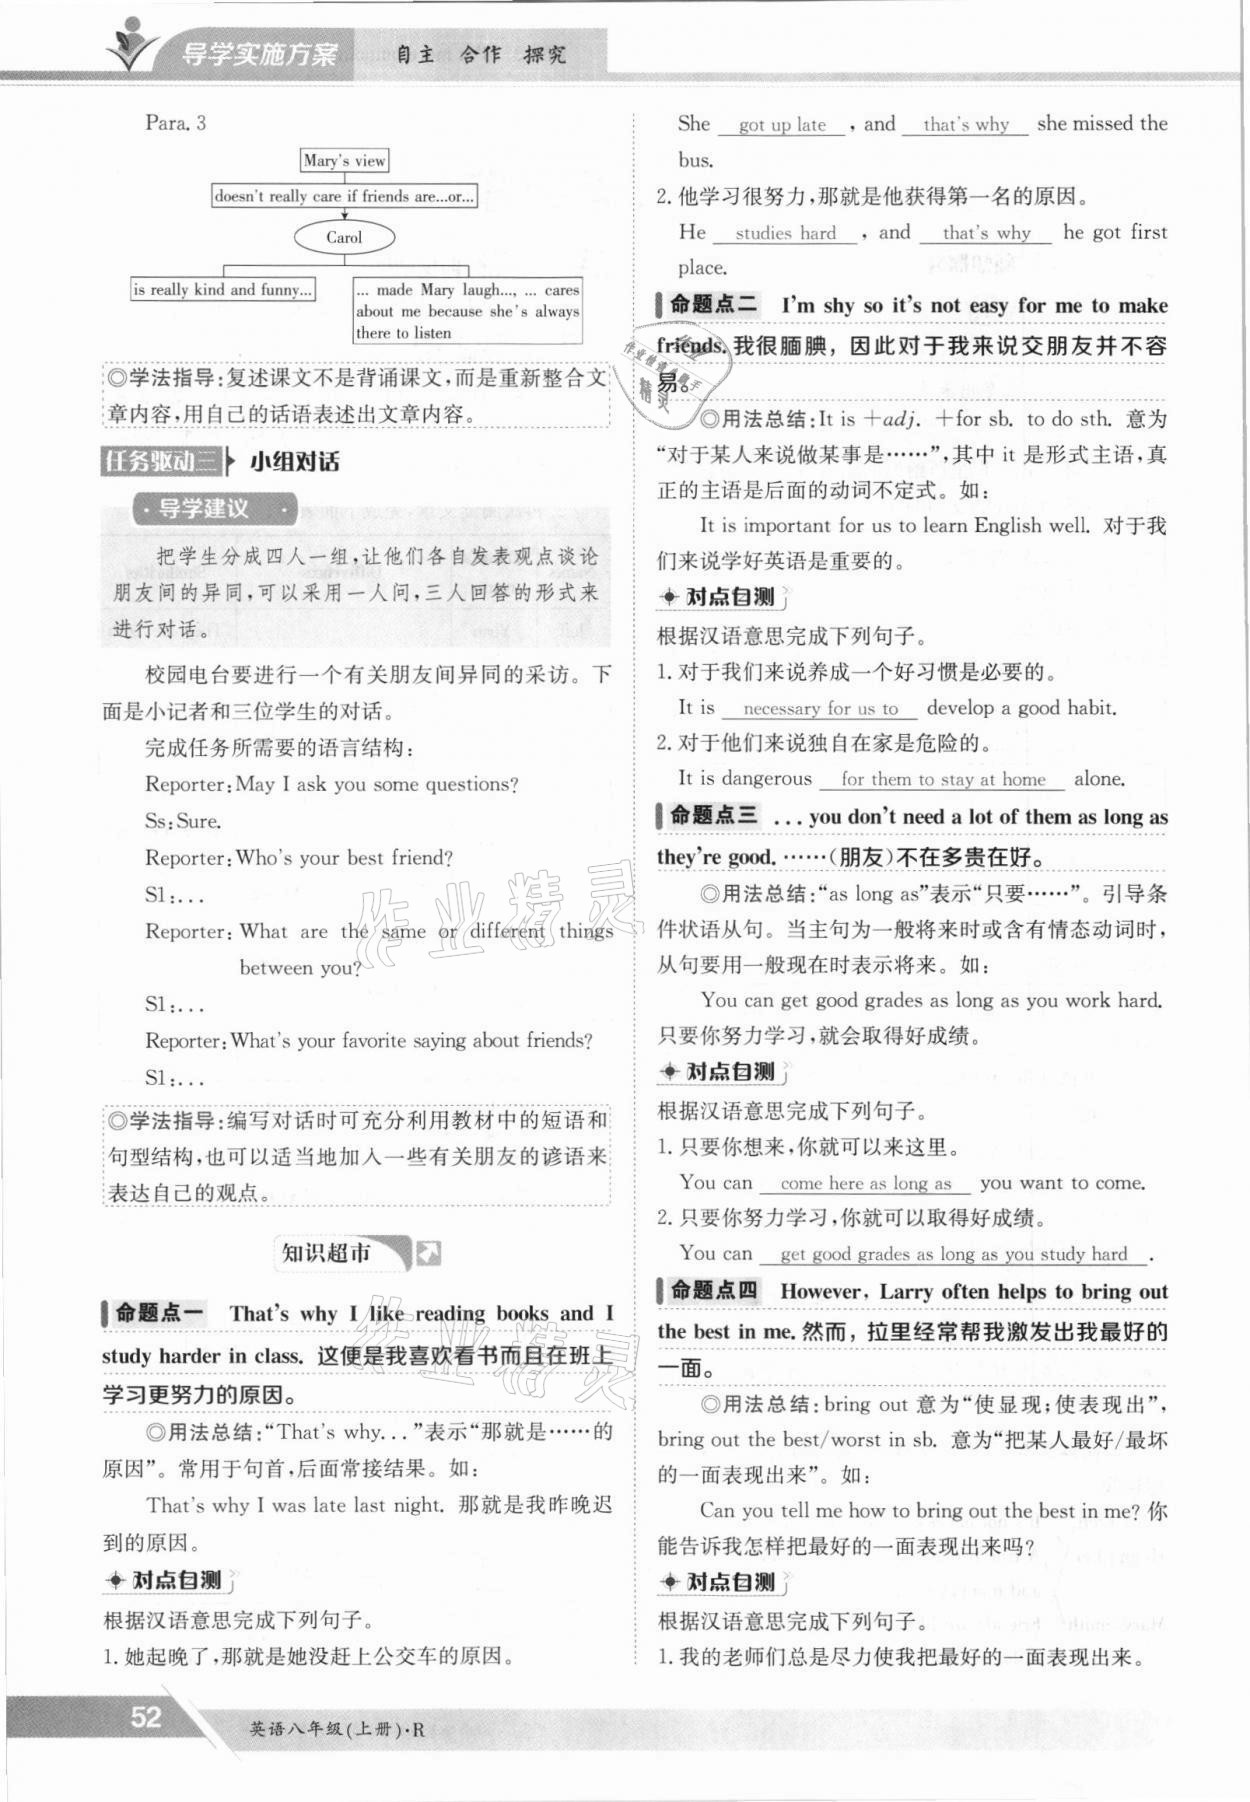 导学实施方案 自主 合作 探究
Para. 3
Mary's view
doesn't really care if friends are...or...
Carol
is really kind and funny...
... made Mary laugh..., ... cares
about me because she's always
there to listen
◎学法指导:复述课文不是背诵课文,而是重新整合文
章内容,用自己的话语表述出文章内容。
任务驱动三 小组对话
·导学建议·
把学生分成四人一组,让他们各自发表观点谈论
朋友间的异同,可以采用一人问,三人回答的形式来
进行对话。
校园电台要进行一个有关朋友间异同的采访。下
面是小记者和三位学生的对话。
完成任务所需要的语言结构:
Reporter:May I ask you some questions?
Ss:Sure.
Reporter:Who's your best friend?
S1:...
Reporter: What are the same or different things
between you?
S1:...
Reporter:What's your favorite saying about friends?
S1:...
◎学法指导:编写对话时可充分利用教材中的短语和
句型结构,也可以适当地加入一些有关朋友的谚语来
表达自己的观点。
知识超市
命题点一 That's why I like reading books and I
study harder in class. 这便是我喜欢看书而且在班上
学习更努力的原因。
◎用法总结:“That's why...”表示“那就是……的
原因”。常用于句首,后面常接结果。如:
That's why I was late last night. 那就是我昨晚迟
到的原因。
对点自测
根据汉语意思完成下列句子。
1. 她起晚了,那就是她没赶上公交车的原因。
She got up late , and that's why she missed the
bus.
2. 他学习很努力,那就是他获得第一名的原因。
He studies hard , and that's why he got first
place.
命题点二 I'm shy so it's not easy for me to make
friends. 我很腼腆，因此对于我来说交朋友并不容
易。
◎用法总结:It is +adj. +for sb. to do sth. 意为
“对于某人来说做某事是……”,其中 it 是形式主语,真
正的主语是后面的动词不定式。如:
It is important for us to learn English well. 对于我
们来说学好英语是重要的。
对点自测
根据汉语意思完成下列句子。
1. 对于我们来说养成一个好习惯是必要的。
It is necessary for us to develop a good habit.
2. 对于他们来说独自在家是危险的。
It is dangerous for them to stay at home alone.
命题点三 ... you don't need a lot of them as long as
they're good. ……(朋友)不在多贵在好。
◎用法总结:“as long as”表示“只要……”。引导条
件状语从句。当主句为一般将来时或含有情态动词时,
从句要用一般现在时表示将来。如:
You can get good grades as long as you work hard.
只要你努力学习,就会取得好成绩。
对点自测
根据汉语意思完成下列句子。
1. 只要你想来,你就可以来这里。
You can come here as long as you want to come.
2. 只要你努力学习,你就可以取得好成绩。
You can get good grades as long as you study hard .
命题点四 However, Larry often helps to bring out
the best in me. 然而，拉里经常帮我激发出我最好的
一面。
◎用法总结:bring out 意为“使显现;使表现出”,
bring out the best/worst in sb. 意为“把某人最好/最坏
的一面表现出来”。如:
Can you tell me how to bring out the best in me? 你
能告诉我怎样把最好的一面表现出来吗?
对点自测
根据汉语意思完成下列句子。
1. 我的老师们总是尽力使我把最好的一面表现出来。
52 英语八年级(上册)·R
作业精灵
作业精灵